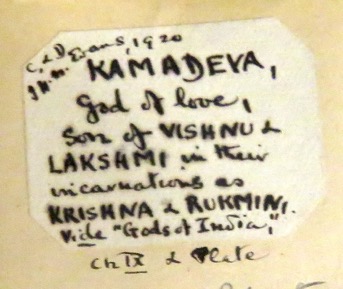 C. & D. Evans, 1920
J.H.M.
KAMADEVA,
God of love,
Son of VISHNU &
LAKSHMI in their
incarnations as
KRISHNA & RUKMINI.
Vide "Gods of India,"
Ch IX & Plate